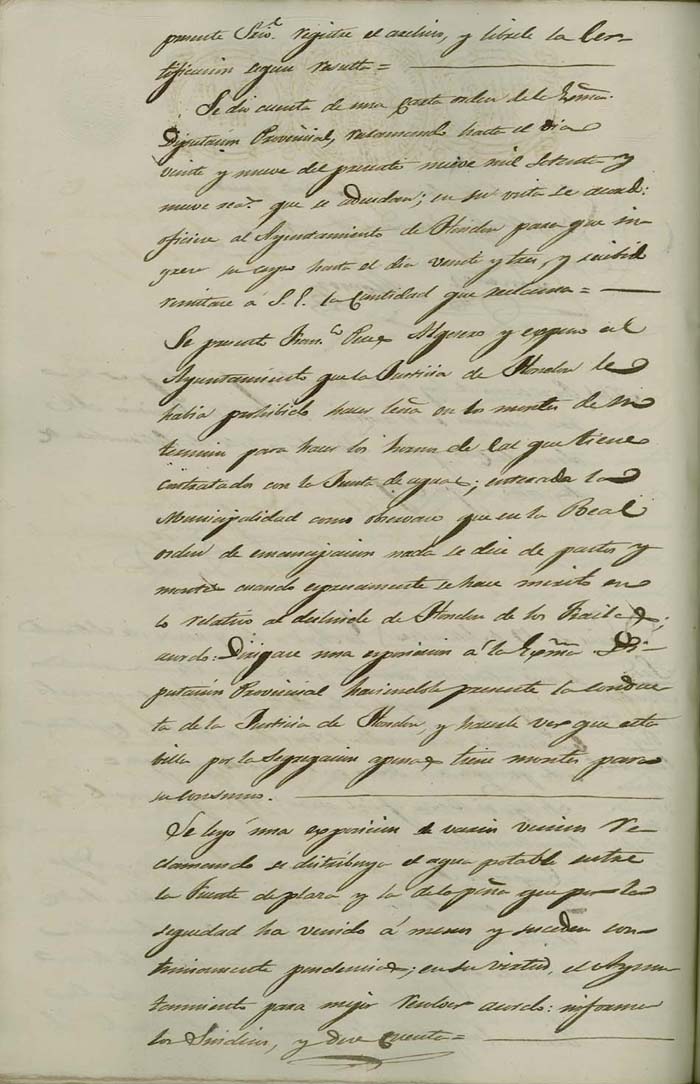 presente Srio. registre el archivo, y librele la Cer-
tificacion segun resulta =
Se dio cuenta de una carta orden de la Exma.
Diputacion Provincial, reclamando hasta el dia
veinte y nueve del presente nueve mil setenta y
nueve rea.s que se adeudan; en su vista se acord:
oficiese al Ayuntamiento de Hondon para que in-
grese su cupo hasta el dia veinte y tres, y recibido
remitase á S. E. la Cantidad que reclama =
Se presentó Fran.co Perez Algerro y espuso al
Ayuntamiento que la Justicia de Hondon le
habia prohibido hacer leña en los montes de su
termino para hacer los hornos de cal que tiene
contratados con la Junta de aguas; enterada la
Municipalidad como observase que en la Real
orden de emancipacion nada se dice de pastos y
montes cuando espresamente se hace merito en
lo relativo al deslinde de Hondon de los Frailes,
acordo: Dirigase una esposicion á la Exma. Di-
putacion Provincial haciendole presente la conduc-
ta de la Justicia de Hondon, y hacerle ver que esta
billa por la segregacion apenas tiene montes para
su consumo.
Se leyó una exposicion de varios vecinos re-
clamando se distribuya el agua potable entre
la Fuente de plaza y la de la peña que por la
sequedad ha venido á menos y suceden con-
tinuamente pendencias; en su virtud, el Ayun-
tamiento para mejor resolver acordo: informen
los Sindicos, y dese Cuenta =